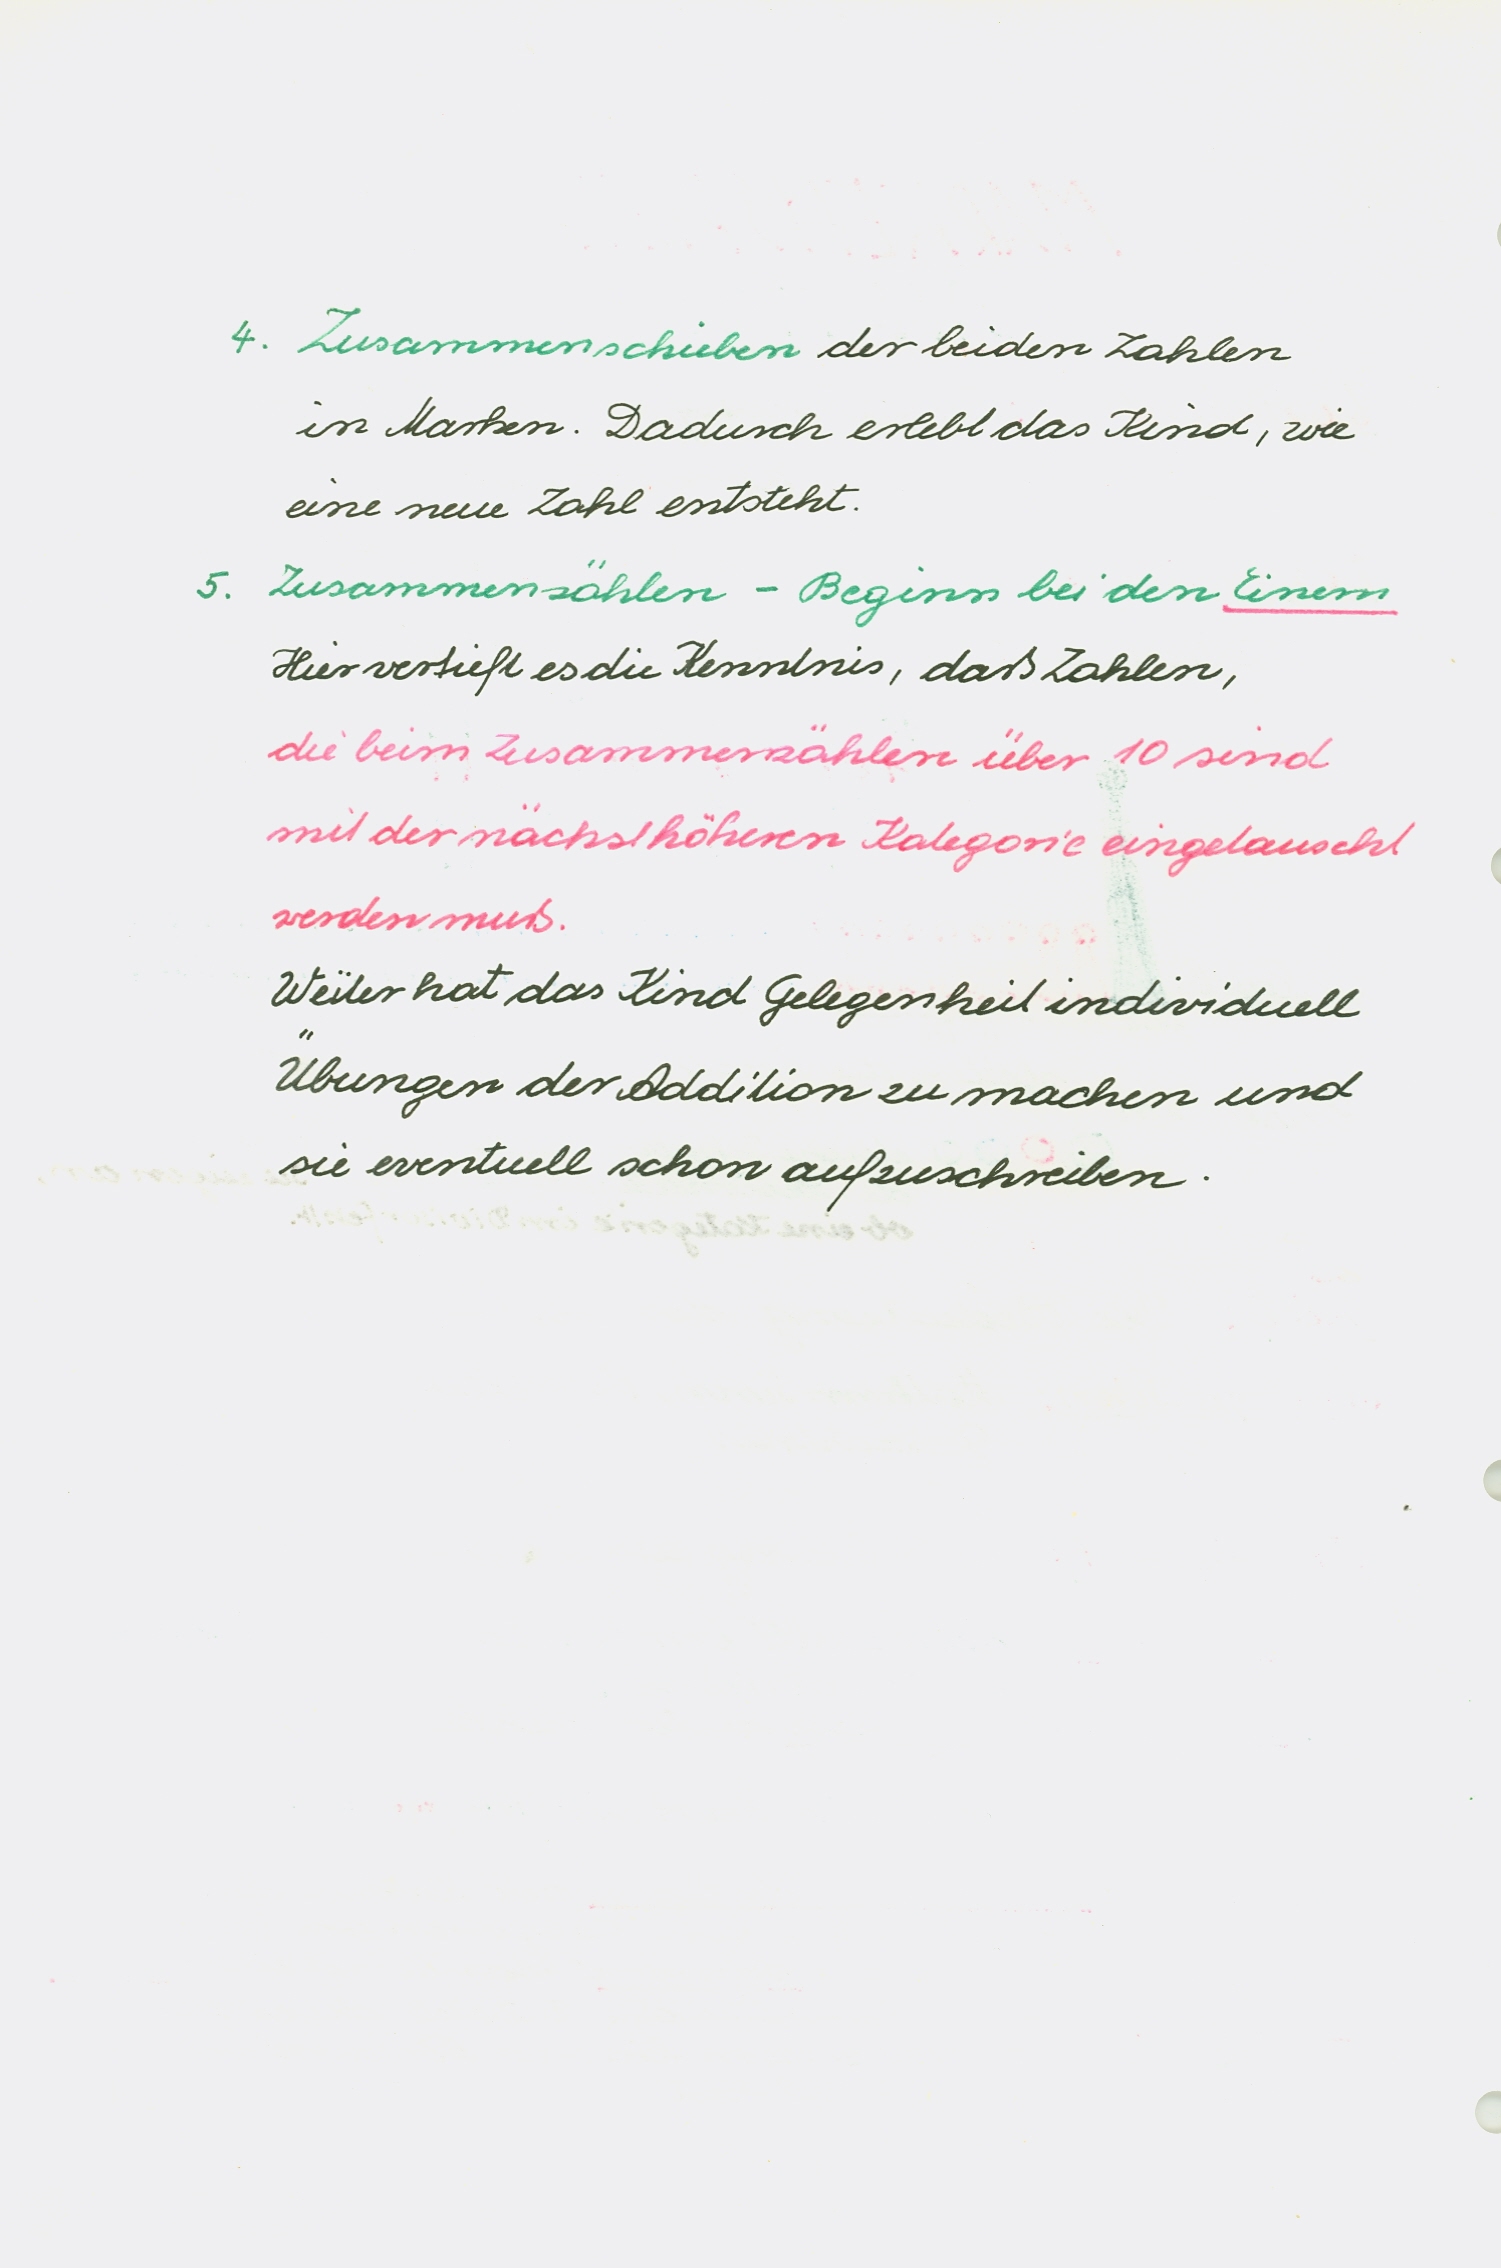 4. Zusammenschieben der beiden Zahlen
in Marken. Dadurch erlebt das Kind, wie
eine neue Zahl entsteht.
5. Zusammenzählen - Beginn bei den Einern
Hier vertieft es die Kenntnis, daß Zahlen,
die beim Zusammenzählen über 10 sind
mit der nächsthöheren Kategorie eingetauscht
werden muß.
Weiter hat das Kind Gelegenheit individuell
Übungen der Addition zu machen und
sie eventuell schon aufzuschreiben.